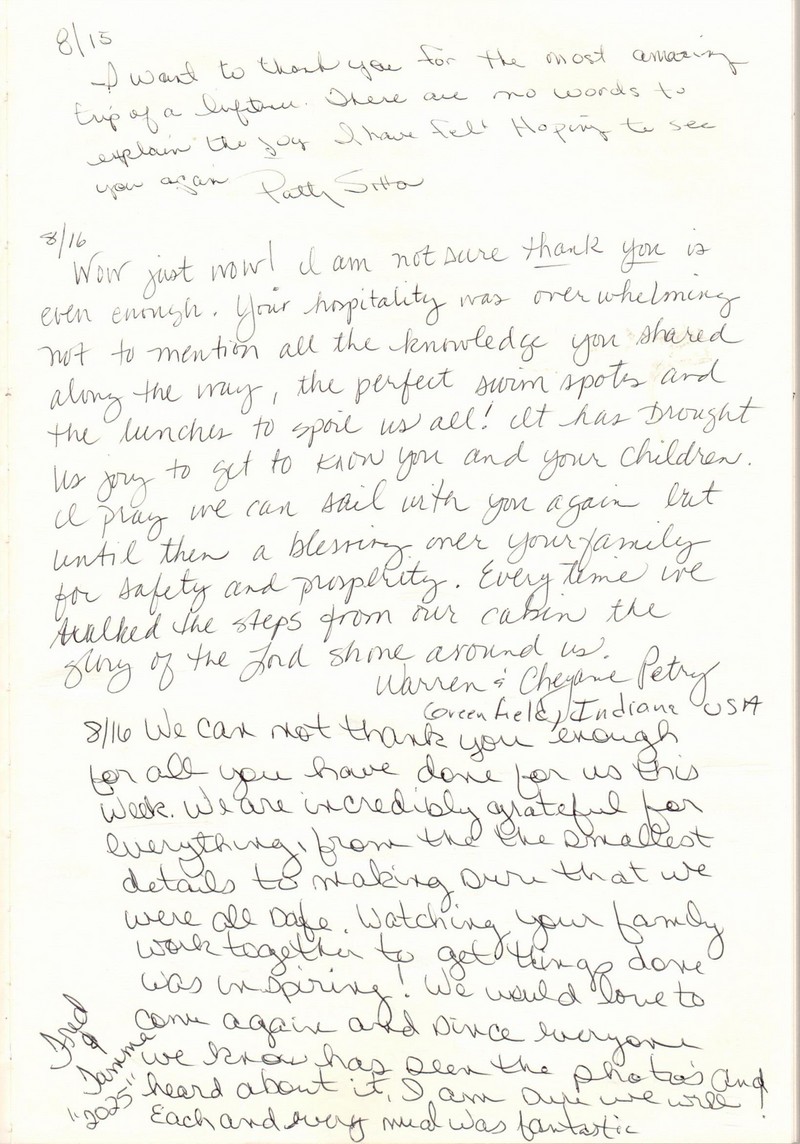 8/15
I want to thank you for the most amazing
trip of a liftem. There are no words to
explain the joy I have felt Hoping to see
you again Patty Sitta
8/16
Wow just wow! I am not sure thank you is
even enough. Your hospitality was overwhelming
not to mention all the knowledge you shared
along the way, the perfect swim spots and
the lunches to spoil us all! It has brought
us joy to get to know you and your children.
I pray we can sail with you again but
until then a blessing over your family
for safety and prosperity. Every time we
walked the steps from our cabin the
glory of the Lord shone around us.
Warren & Cheyanne Petry
Greenfield, Indiana USA
8/16 We can not thank you enough
for all you have done for us this
week. We are incredibly grateful for
everything, from the the smallest
details to making sure that we
were all safe. Watching your family
work together to get things done
was inspiring! We would love to
come again and since everyone
we know has seen the photo's and
heard about it, I am sure we will!
Each and every meal was fantastic
Fred
&
Tamma
"2025"